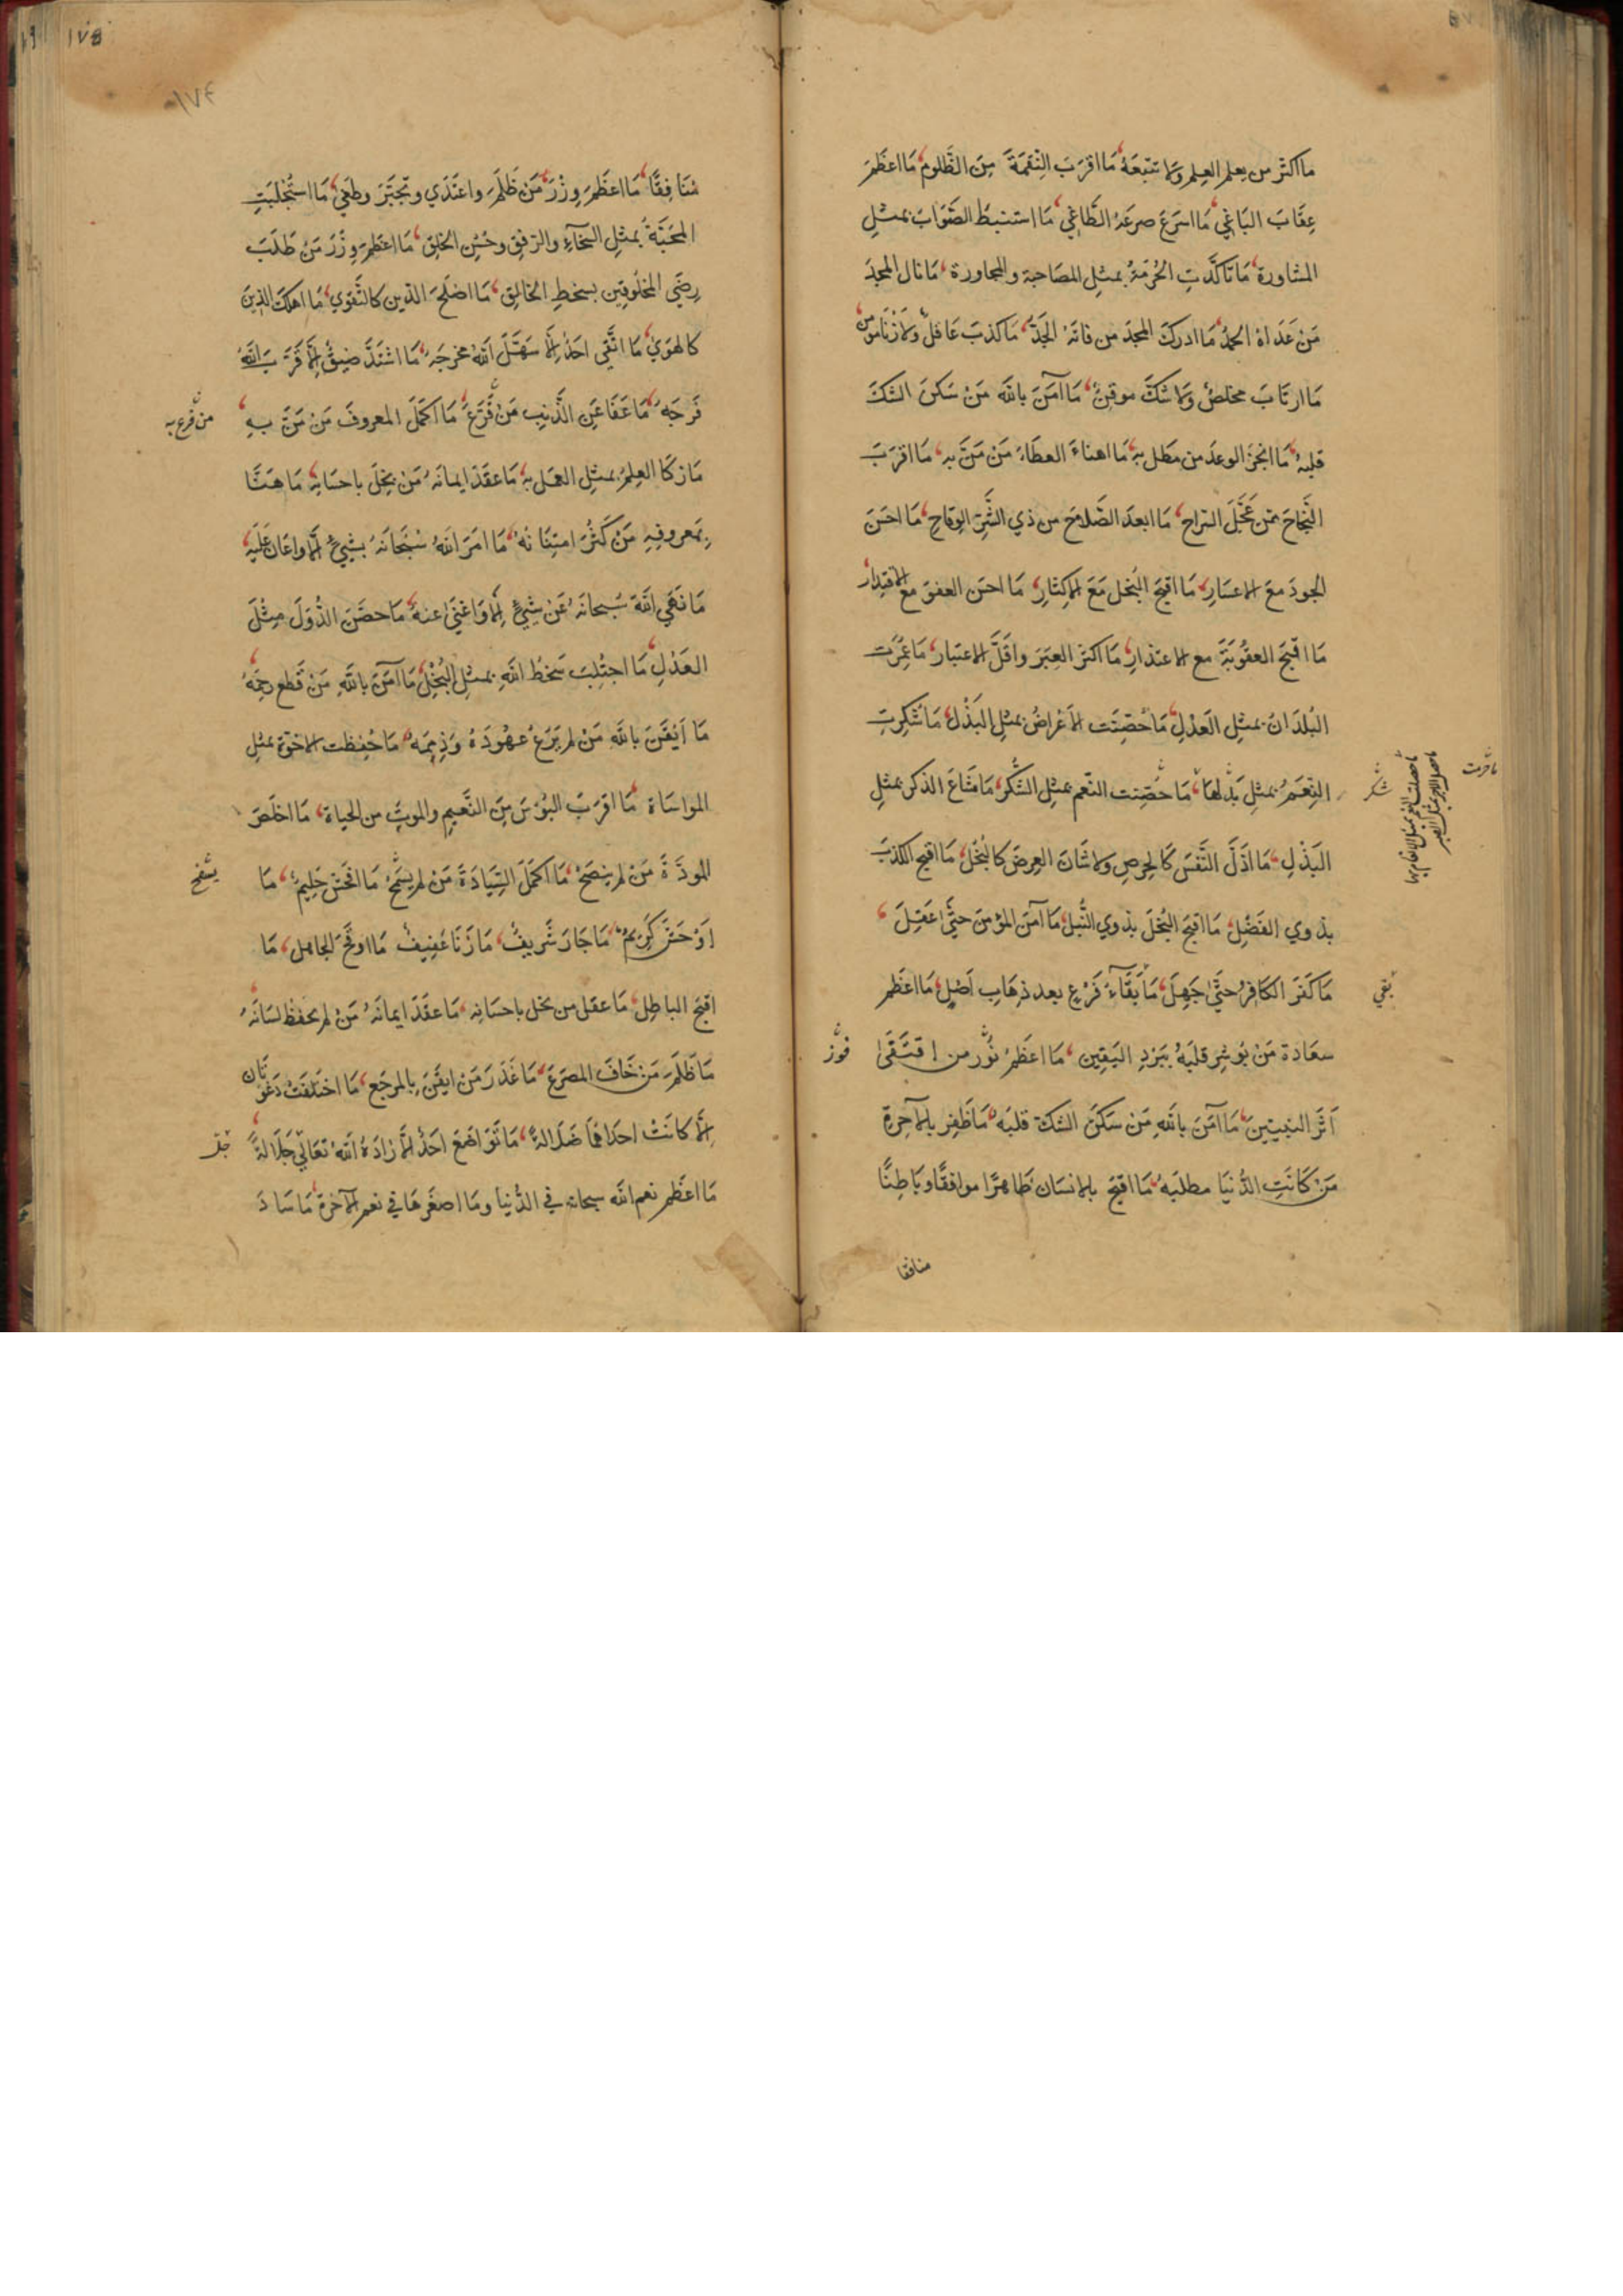 ما اكثر من يعلم العلم ولا يتبعه ما اقرب النقمة من الظلوم ما اعظم
عقاب الباغي ما اسرع صرعة الطاغي ما استنبط الصواب بمثل
المشاورة ما تاكدت الحرمة بمثل المصاحبة والمجاورة ما نال المجد
من عداه الحمد ما ادرك المجد من فاته الجد ما كذب عاقل ولا زنا مومن
ما ارتاب مخلص ولا شك موقن ما آمن بالله من سكن الشك
قلبه ما انجز الوعد من مطل به ما اهناء العطاء من من به ما اقرب
النجاح ممن عجل السراح ما ابعد الصلاح من ذي الشر الوقاح ما احسن
الجود مع الاعسار ما اقبح البخل مع الاكثار ما احسن العفو مع الاقتدار
ما اقبح العقوبة مع الاعتذار ما اكثر العبر واقل الاعتبار ما عمرت
البلدان بمثل العدل ما حصنت الاعراض بمثل البذل ما شكرت
النعم بمثل بذلها ما حصنت النعم بمثل الشكر ما شاع الذكر بمثل
البذل ما اذل النفس كالحرص ولا شان العرض كالبخل ما اقبح الكذب
بذوي الفضل ما اقبح البخل بذوي النبل ما آمن المؤمن حتى عقل
ما كفر الكافر حتى جهل ما بقاء فرع بعد ذهاب اصل ما اعظم
سعادة من بوشر قلبه ببرد اليقين ما اعظم نور من اقتفى
اثر النبيين ما آمن بالله من سكن الشك قلبه ما ظفر بالآخرة
من كانت الدنيا مطلبه ما اقبح بالانسان ظاهرا موافقا وباطنا
منافقا
ما حرمت
شكر
بقي
فوز
١٧٥
١٧٤
منافقا ما اعظم وزر من ظلم واعتدي وتجبر وطغي ما استجلبت
المحبة بمثل السخاء والرفق وحسن الخلق ما اعظم وزر من طلب
رضي المخلوقين بسخط الخالق ما اصلح الدين كالتقوي ما اهلك الدين
كالهوي ما اتقي احد الا سهل الله مخرجه ما اشتد ضيق الا قرب الله
فرجه ما عفا عن الذنب من قرع ما اكمل المعروف من من به
ما زكا العلم بمثل العمل به ما عقد ايمانه من بخل باحسانه ما هنا
بمعروفه من كثر امتنانه ما امر الله سبحانه بشيء الا واعان عليه
ما نهي الله سبحانه عن شيء الا واغني عنه ما حصن الدول مثل
العدل ما اجتلب سخط الله بمثل البخل ما آمن بالله من قطع رحمه
ما ايقن بالله من لم يرع عهوده وذممه ما حفظت الاخوة بمثل
المواساة ما اقرب البؤس من النعيم والموت من الحياة ما اخلص
المودة من لم ينصح ما اكمل السيادة من لم يسمح ما افحش حليم ما
اوحش كريم ما جار شريف ما زنا عفيف ما اوقح الجاهل ما
اقبح الباطل ما عقل من بخل باحسانه ما عقد ايمانه من لم يحفظ لسانه
ما ظلم من خاف المصرع ما غدر من ايقن بالمرجع ما اختلفت دعوتان
الا كانت احداهما ضلالة ما تواضع احد الا زاده الله تعالي جلالة
ما اعظم نعم الله سبحانه في الدنيا وما اصغرها في نعم الآخرة ما ساد
من قرع به